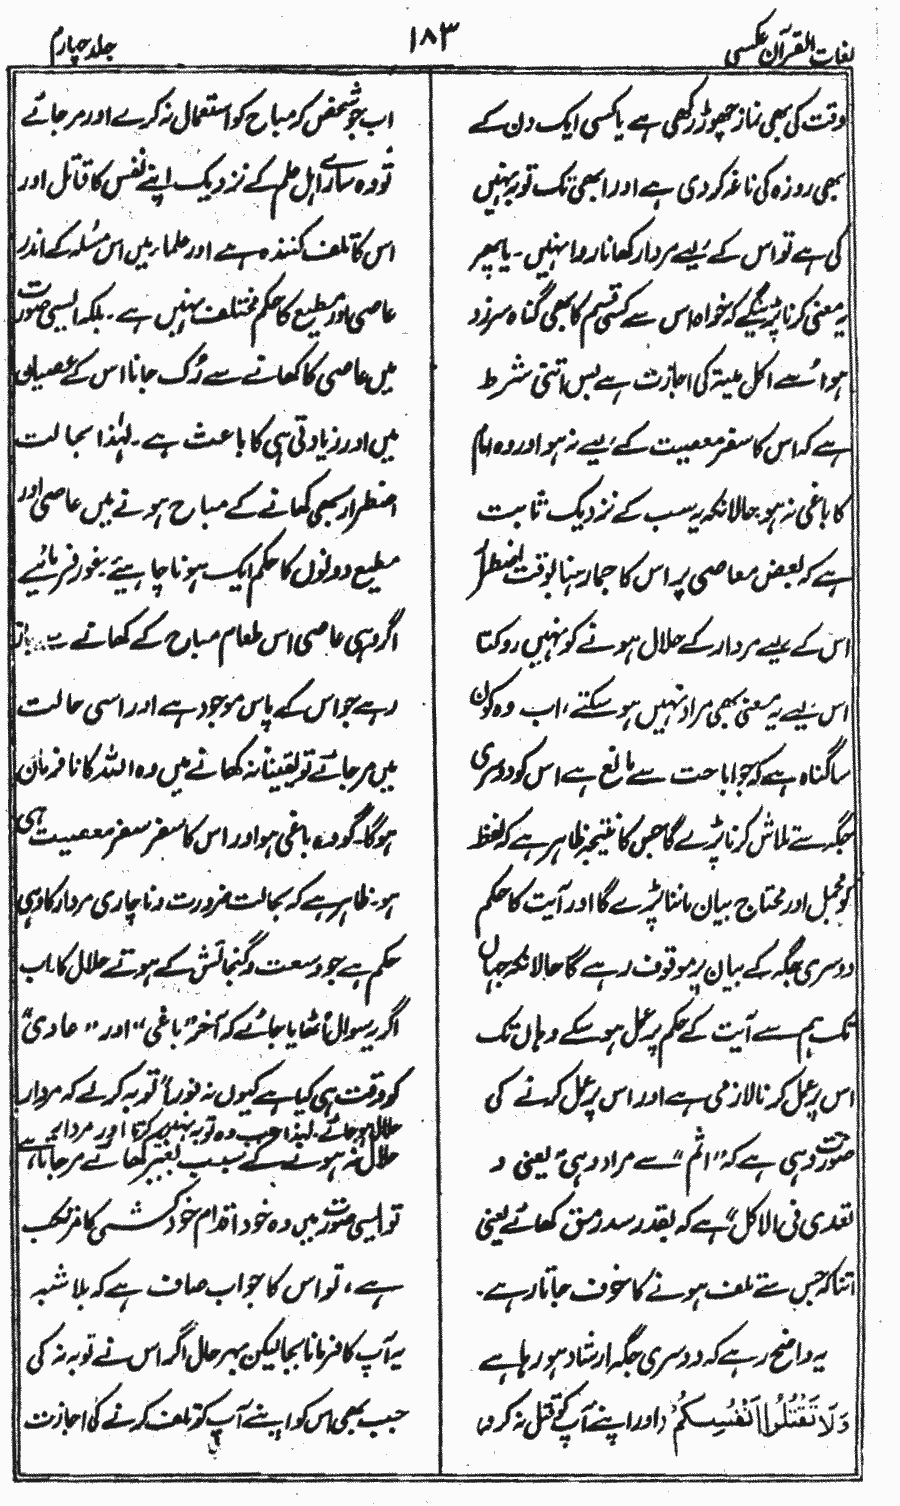 لغات القرآن عکسی
۱۸۳
جلد چہارم
وقت کی بھی نماز چھوڑ رکھی ہے یا کسی ایک دن کے
بھی روزہ کی ناغہ کر دی ہے اور ابھی تک توبہ نہیں
کی ہے تو اس کے لیے مردار کھانا روا نہیں۔ یا پھر
یہ معنی کرنا پڑینگے کہ خواہ اس سے کسی قسم کا بھی گناہ سرزد
ہوا ہے اکل میتہ کی اجازت ہے بس اتنی شرط
ہے کہ اس کا سفر معصیت کے لیے نہ ہو اور وہ امام
کا باغی نہ ہو حالانکہ یہ سب کے نزدیک ثابت
ہے کہ بعض معاصی پر اس کا جما رہنا بوقت اضطرار
اس کے لیے مردار کے حلال ہونے کو نہیں روکتا
اس لیے یہ معنی بھی مراد نہیں ہو سکتے، اب وہ کون
سا گناہ ہے کہ جو اباحت سے مانع ہے اس کو دوسری
جگہ سے تلاش کرنا پڑے گا جس کا نتیجہ ظاہر ہے کہ لفظ
کو مجمل اور محتاج بیان ماننا پڑے گا اور آیت کا حکم
دوسری جگہ کے بیان پر موقوف رہے گا حالانکہ جہاں
تک ہم سے آیت کے حکم پر عمل ہو سکے وہاں تک
اس پر عمل کرنا لازمی ہے اور اس پر عمل کرنے کی
صورت وہی ہے کہ "اثم" سے مراد وہی یعنی و
تعدی فی الاکل" ہے کہ بقدر سد رمق کھائے یعنی
اتنا کہ جس سے تلف ہونے کا خوف جاتا رہے۔
یہ واضح رہے کہ دوسری جگہ ارشاد ہو رہا ہے
وَلَا تَقْتُلُوا أَنْفُسَكُمْ (اور اپنے آپ کو قتل نہ کرو)
اب جو شخص کہ مباح کو استعمال نہ کرے اور مر جائے
تو وہ سارے اہل علم کے نزدیک اپنے نفس کا قاتل اور
اس کا تلف کنندہ ہے اور علماء میں اس مسئلہ کے اندر
عاصی اور مطیع کا حکم مختلف نہیں ہے۔ بلکہ ایسی صورت
میں عاصی کا کھانے سے رک جانا اس کے عصیان
میں اور زیادتی ہی کا باعث ہے۔ لہٰذا بحالت
اضطرار بھی کھانے کے مباح ہونے میں عاصی اور
مطیع دونوں کا حکم ایک ہونا چاہیئے۔ بغور فرمائیے
اگر وہی عاصی اس طعام مباح کے کھانے سے باز
رہے جو اس کے پاس موجود ہے اور اسی حالت
میں مر جائے تو یقیناً نہ کھانے میں وہ اللہ کا نافرمان
ہوگا۔ گو وہ باغی ہو اور اس کا سفر سفر معصیت ہی
ہو۔ ظاہر ہے کہ بحالت ضرورت و ناچاری مردار کا وہی
حکم ہے جو وسعت و گنجائش کے ہوتے حلال کا اب
اگر یہ سوال اٹھایا جائے کہ آخر "باغی" اور "عادی"
کو وقت ہی کیا ہے کیوں نہ فوراً توبہ کر لے کہ مردار
حلال ہو جائے۔ لہٰذا جب وہ توبہ نہیں کرتا اور مردار
حلال نہ ہونے کے سبب بغیر کھائے مر جاتا ہے،
تو ایسی صورت میں وہ خود اقدام خود کشی کا مرتکب
ہے، تو اس کا جواب صاف ہے کہ بلا شبہ
یہ آپ کا فرمانا بجا لیکن بہر حال اگر اس نے توبہ نہ کی
جب بھی اس کو اپنے آپ کو تلف کرنے کی اجازت